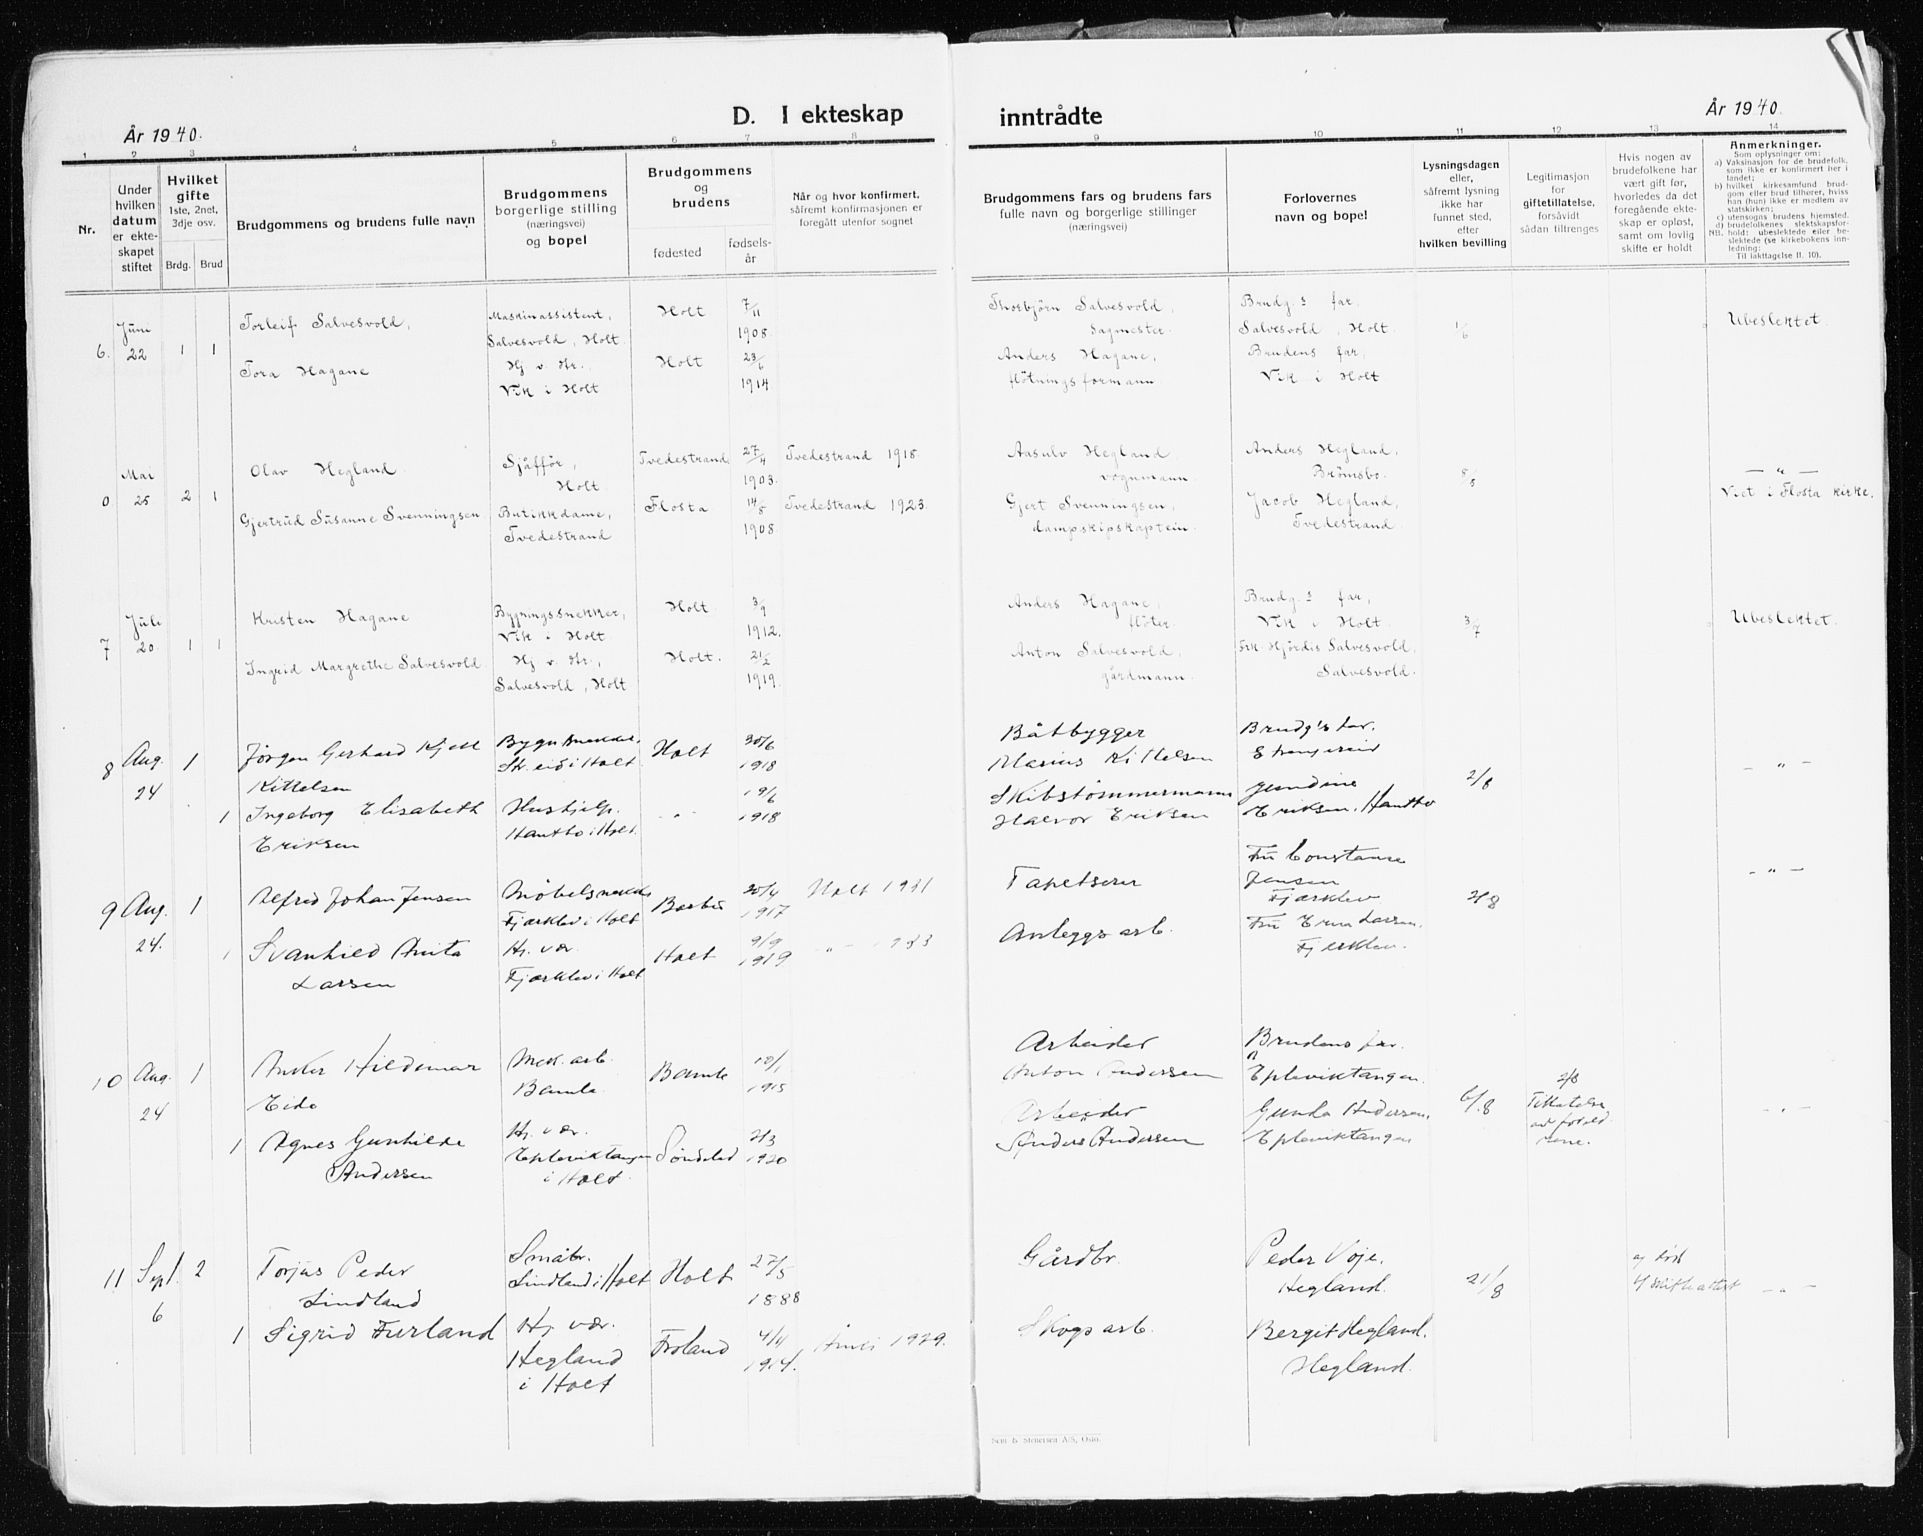 År 1940.
D. I ekteskap inntrådte
År 1940.
1 2 3 4 5 6 7 8 9 10 11 12 13 14
Nr.
Under hvilken datum er ekteskapet stiftet
Hvilket gifte
1ste, 2net, 3dje osv.
Brdg. Brud
Brudgommens og brudens fulle navn
Brudgommens borgerlige stilling (næringsvei) og bopel
Brudgommens og brudens
fødested
fødselsår
Når og hvor konfirmert,
såfremt konfirmasjonen er
foregått utenfor sognet
Brudgommens fars og brudens fars
fulle navn og borgerlige stillinger
(næringsvei)
Forlovernes
navn og bopel
Lysningsdagen
eller,
såfremt lysning
ikke har
funnet sted,
efter
hvilken bevilling
Legitimasjon
for
giftetillatelse,
forsåvidt
sådan tiltrenges
Hvis nogen av
brudefolkene har
vært gift før,
hvorledes da det
foregående ekteskap er opløst,
samt om lovlig
skifte er holdt
Anmerkninger.
Som oplysninger om:
a) Vaksinasjon for de brudefolk,
som ikke er konfirmert her i
landet;
b) hvilket kirkesamfund brudgom eller brud tilhører, hviss
han (hun) ikke er medlem av
statskirken;
c) utensogns brudens hjemsted.
d) brudefolkenes slektskapsforhold: ubeslektede eller beslektede (se kirkebokens innledning:
NB. Til iakttagelse II. 10).
6. Juni 22 1 1
Torleif Salvesvold,
Maskinassistent,
Salvesvold, Holt.
Holt 7/11 1908.
Thorbjörn Salvesvold,
sagmester.
Brudg.s far,
Salvesvold, Holt.
1/6
Ubeslektet.
Tora Hagane
Hj v. Hr.,
Vik i Holt
Holt 23/6 1914
Anders Hagane,
flötningsformann
Brudens far,
Vik i Holt
0 Mai 25 2 1
Olav Hegland.
Sjåfför,
Holt.
Tvedestrand 27/4 1903.
Tvedestrand 1918.
Aasulv Hegland
vognmann.
Anders Hegland,
Brömsbo.
8/5
— " —
Viet i Flosta kirke.
Gjertrud Susanne Svenningsen
Butikkdame,
Tvedestrand.
Flosta. 14/5 1908
Tvedestrand 1923.
Gjert Svenningsen,
dampskipskaptein.
Jacob Hegland,
Tvedestrand.
7 Juli 20. 1 1
Kristen Hagane
Bygningssnekker,
Vik i Holt
Holt. 3/9 1912.
Anders Hagane,
flöter.
Brudg.s far,
Vik i Holt.
3/7
Ubeslektet.
Ingrid Margrethe Salvesvold
Hj v. Hr.,
Salvesvold, Holt
Holt. 21/2 1919.
Anton Salvesvold,
gårdmann.
Frk. Hjördis Salvesvold,
Salvesvold.
8 Aug. 24 1
Jørgen Gerhard Kjell
Kittelsen
Str. eid i Holt
Holt 30/6 1918
Båtbygger
Marius Kittelsen
Brudg's far.
2/8
- " -
1 Ingeborg Elisabeth
Eriksen
Hushjelp.
Hantho i Holt.
- " - 19/6 1918
Skibstømmermann
Halvor Eriksen
Eriksen, Hantho
9 Aug. 24. 1
Alfred Johan Jensen
Møbelsnekker
Fjærklev i Holt
Barbu 20/4 1917
Holt 1931
Tapetserer
Fru Constanse
Jensen
Fjærklev
2/8
- " -
1 Svanhild Anita
Larsen
Hj. vær.
Fjærklev i Holt
Holt 9/9 1919
- " - 1933
Anleggsarb.
Fru Erna Larsen,
Fjærklev.
10 Aug. 24 1
Anker Hildemar
Eide
Mek. arb.
Bamle
Bamle 10/1 1915
Arbeider
Anton Andersen
Brudens far.
Epleviktangen.
6/8
2/8
Tillatelse
av foreld
rene.
- " -
1 Agnes Gunhilde
Andersen
Hj. vær.
Epleviktangen
i Holt.
Søndeled 21/3 1920
Arbeider
Anders Andersen
Gunda Andersen,
Epleviktangen
11 Sept. 6 2
Torjus Peder
Lindland
Småbr.
Lindland i Holt
Holt 27/5 1888
Gårdbr.
Peder Voje.
Hegland.
21/8
a) død
b) skifteattest
- " -
1 Sigrid Furland
Hj. vær.
Hegland
i Holt
Froland 4/4 1914.
Åmli 1929.
Skogsarb.
Bergit Hegland.
Hegland.
Sem & Stenersen A/S, Oslo.